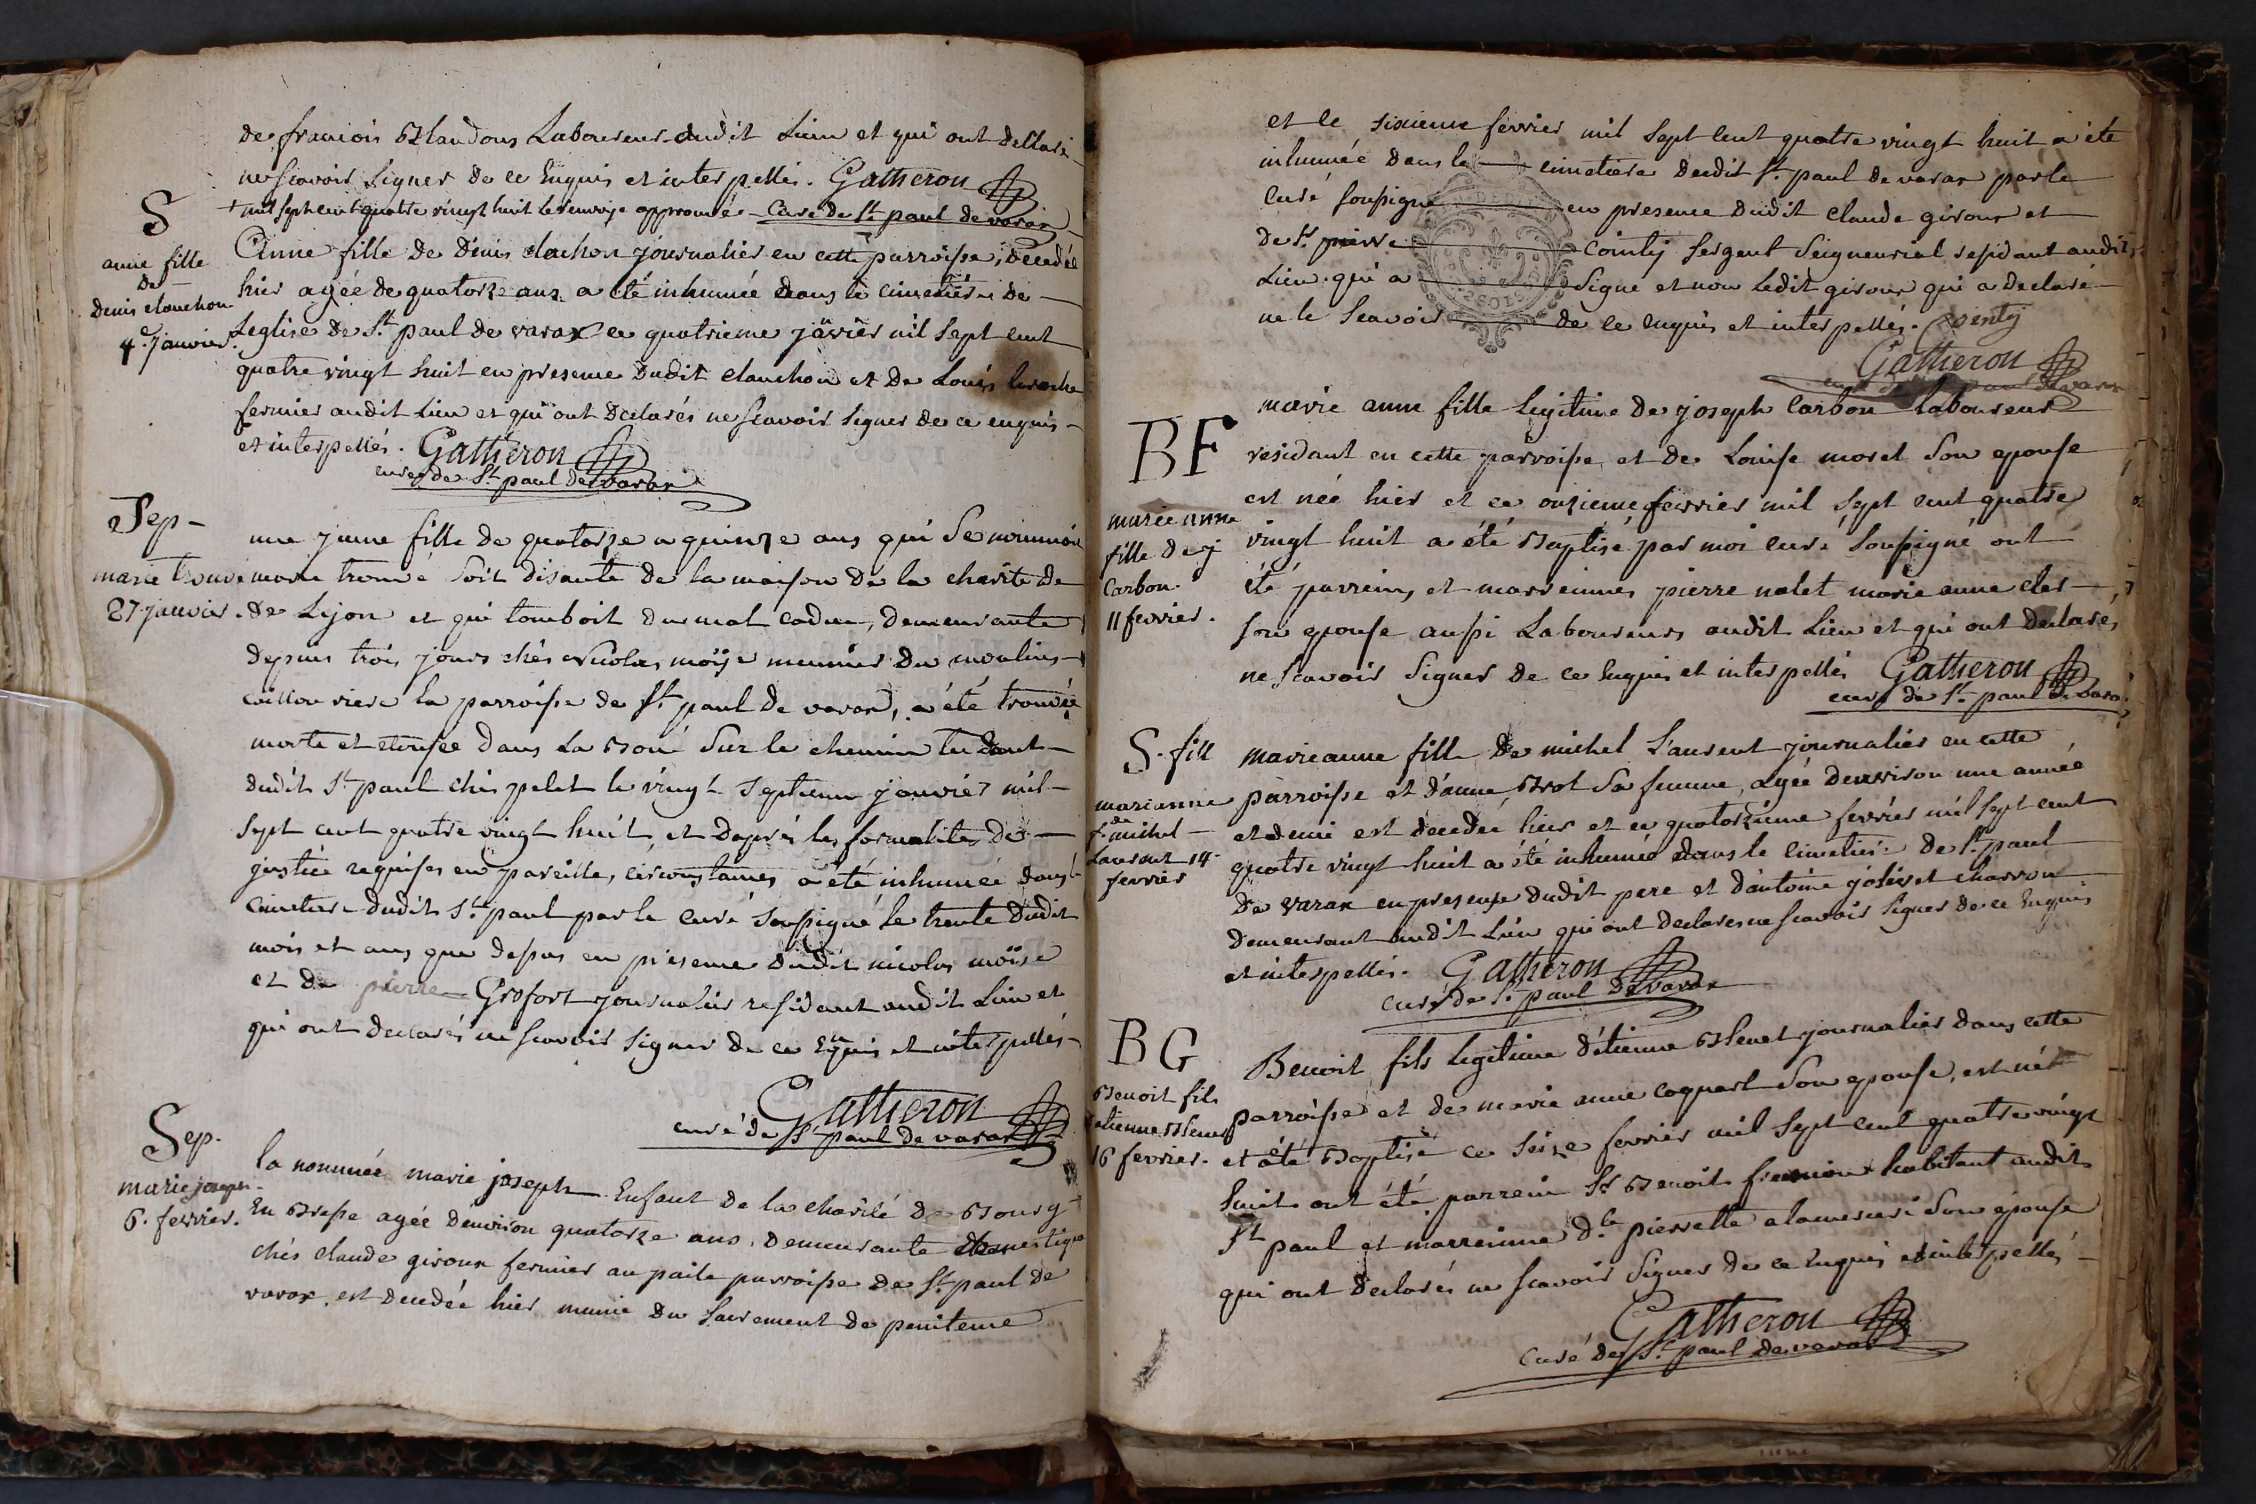 de francois Blandons Laboureur dudit Lieu et qui ont declaré
ne scavoir signer de ce enquis et interpellés. Gatheron
+ mil sept cent quatre vingt huit le renvoye approuvée curé de St paul de varax
S
anne fille
de
denis clanchon
4e janvier.
Anne fille de denis clanchon journalier en cette parroisse, decedée
hier agée de quatorze ans a été inhumée dans le cimetière de
Leglise de St paul de varax ce quatrieme janvier mil sept cent
quatre vingt huit en presence dudit clanchon et de Louis
fermier audit Lieu et qui ont declarés ne scavoir signer de ce enquis
et interpellés. Gatheron
curé de St paul de varax
Sep-
marie trouvé
27 janvier.
une jeune fille de quatorze a quinze ans qui se nommoit
marie trouvé soit disante de la maison de la charité de
de Lyon et qui tomboit du mal caduc, demeurante
depuis trois jours chés Nicolas moÿse meunier du moulin
la parroisse de St paul de varax, a été trouvée
morte et etoufée dans La Boué sur le chemin tendant
dudit St paul chés polet le vingt septieme janvier mil
sept cent quatre vingt huit, et d'aprés les formalités de
justice requises en pareille, circonstances a été inhumée dans le
cimetiere dudit St paul par le curé soussigné le trente dudit
mois et ans que dessus en presence dudit nicolas moïse
et de pierre Grofort journalier residant audit Lieu et
qui ont declarés ne scavoir signer de ce enquis et interpellés
Gatheron
curé de St paul de varax
Sep.
marie joseph
6. fevrier.
la nommée marie joseph Enfant de la charité de Bourg
En Bresse agée denviron quatorze ans, demeurante domestique
chés claude giroux fermier au paile parroisse de St paul de
varax est decedée hier munie du sacrement de penitence
et le sixieme fevrier mil sept cent quatre vingt huit a été
inhumée dans le cimetiere dudit St paul de varax par le
curé soussigné en presence dudit claude giroux et
de Sr pierre Cointy sergent seigneurial residant audit
Lieu qui a signe et non ledit giroux qui a declaré
ne le scavoir de ce enquis et interpellés. Cointy
Gatheron
curé de St paul de varax
BF
marie anne
fille de j
Carbon
11 fevrier.
marie anne fille legitime de joseph Carbon laboureur
residant en cette parroisse et de Louise morel son epouse
est née hier et ce onzieme fevrier mil sept cent quatre
vingt huit a été Baptisé par moi curé soussigné ont
été parrein, et marreinne, pierre nalet marie anne
son epouse aussi Laboureurs audit Lieu et qui ont declarés
ne scavoir signer de ce enquis et interpellés Gatheron
curé de St paul de varax
S. fill
marianne
fe de michel
Laurent 14
fevrier
marieanne fille de michel Laurent journalier en cette
parroisse et d'anne Brot sa femme, agée denviron une année
et demi est decedée hier et ce quatorzième fevrier mil sept cent
quatre vingt huit a été inhumée dans le cimetiere de St paul
de varax en presence dudit pere et d'antoine charron
demeurant audit Lieu qui ont declarés ne scavoir signer de ce enquis
et interpellés. Gatheron
curé de St paul de varax
BG
Benoit fils
detienne Blenet
16 fevrier.
Benoit fils legitime d'étienne Blenet journalier dans cette
parroisse et de marie anne coquart son epouse, est né
et été Baptisé ce seize fevrier mil sept cent quatre vingt
huit ont été parrein Sr Benoit habitant audit
St paul et marreinne dle pierrette son épouse
qui ont declarés ne scavoir signer de ce enquis et interpellés
Gatheron
Curé de St paul de varax